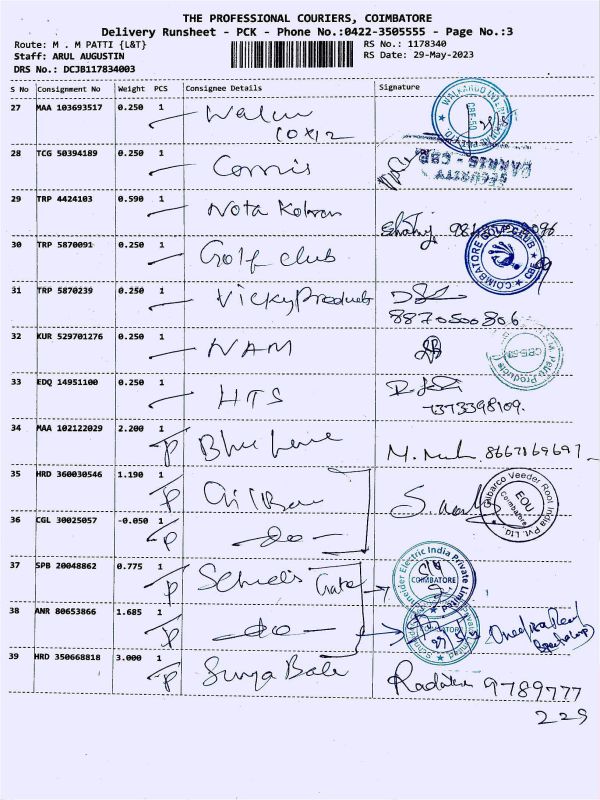 THE PROFESSIONAL COURIERS, COIMBATORE
Delivery Runsheet - PCK - Phone No.:0422-3505555 - Page No.:3
Route: M . M PATTI {L&T}
RS No.: 1178340
Staff: ARUL AUGUSTIN
RS Date: 29-May-2023
DRS No.: DCJB117834003
S No Consignment No Weight PCS Consignee Details Signature
27 MAA 103693517 0.250 1
28 TCG 50394189 0.250 1
SECURITY
29 TRP 4424103 0.590 1 Nota
30 TRP 5870091 0.250 1 Golf club
COIMBATORE GOLF CLUB CBE
31 TRP 5870239 0.250 1 Vicky Products
8870500806
32 KUR 529701276 0.250 1 NAM
33 EDQ 14951100 0.250 1 HTS
7373398109.
34 MAA 102122029 2.200 1 P
8667169697
35 HRD 360030546 1.190 1 P
Gilbarco Veeder Root India Pvt. Ltd.
EOU
Coimbatore
36 CGL 30025057 -0.050 1 P -do-
37 SPB 20048862 0.775 1 P Gate
Schneider Electric India Private Limited
COIMBATORE
38 ANR 80653866 1.685 1 P -do-
39 HRD 350668818 3.000 1 P Surya Bala
9789777
229